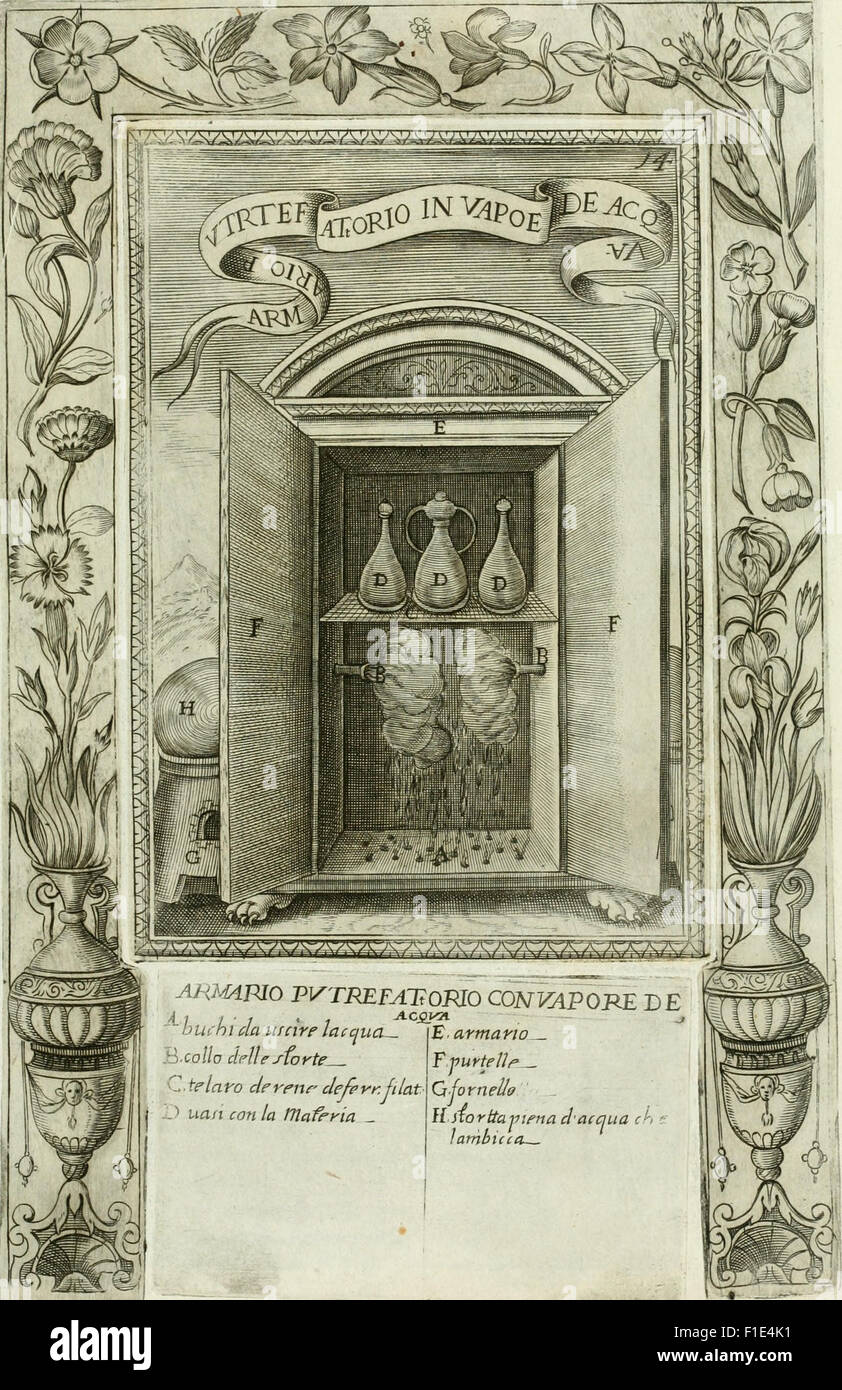 14
ARMARIO PVTRTEFAT:ORIO IN VAPOE DE ACQVA·
E
D D D
F F
B B
H
G
A
ARMARIO PVTREFAT:ORIO CON VAPORE DE
ACQVA
A buchi da uscire lacqua
B. collo delle storte
C. telaro de rene de ferr: filat:
D uasi con la Materia
E. armario
F. purtelle
G. fornello
H. stortta piena d'acqua che
lambicca
alamy stock photo
F1E4K1
www.alamy.com